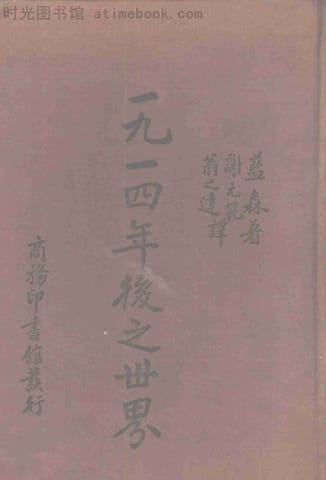 时光图书馆 - atimebook.com
藍森著
謝元範
翁之達譯
一九一四年後之世界
商務印書館發行